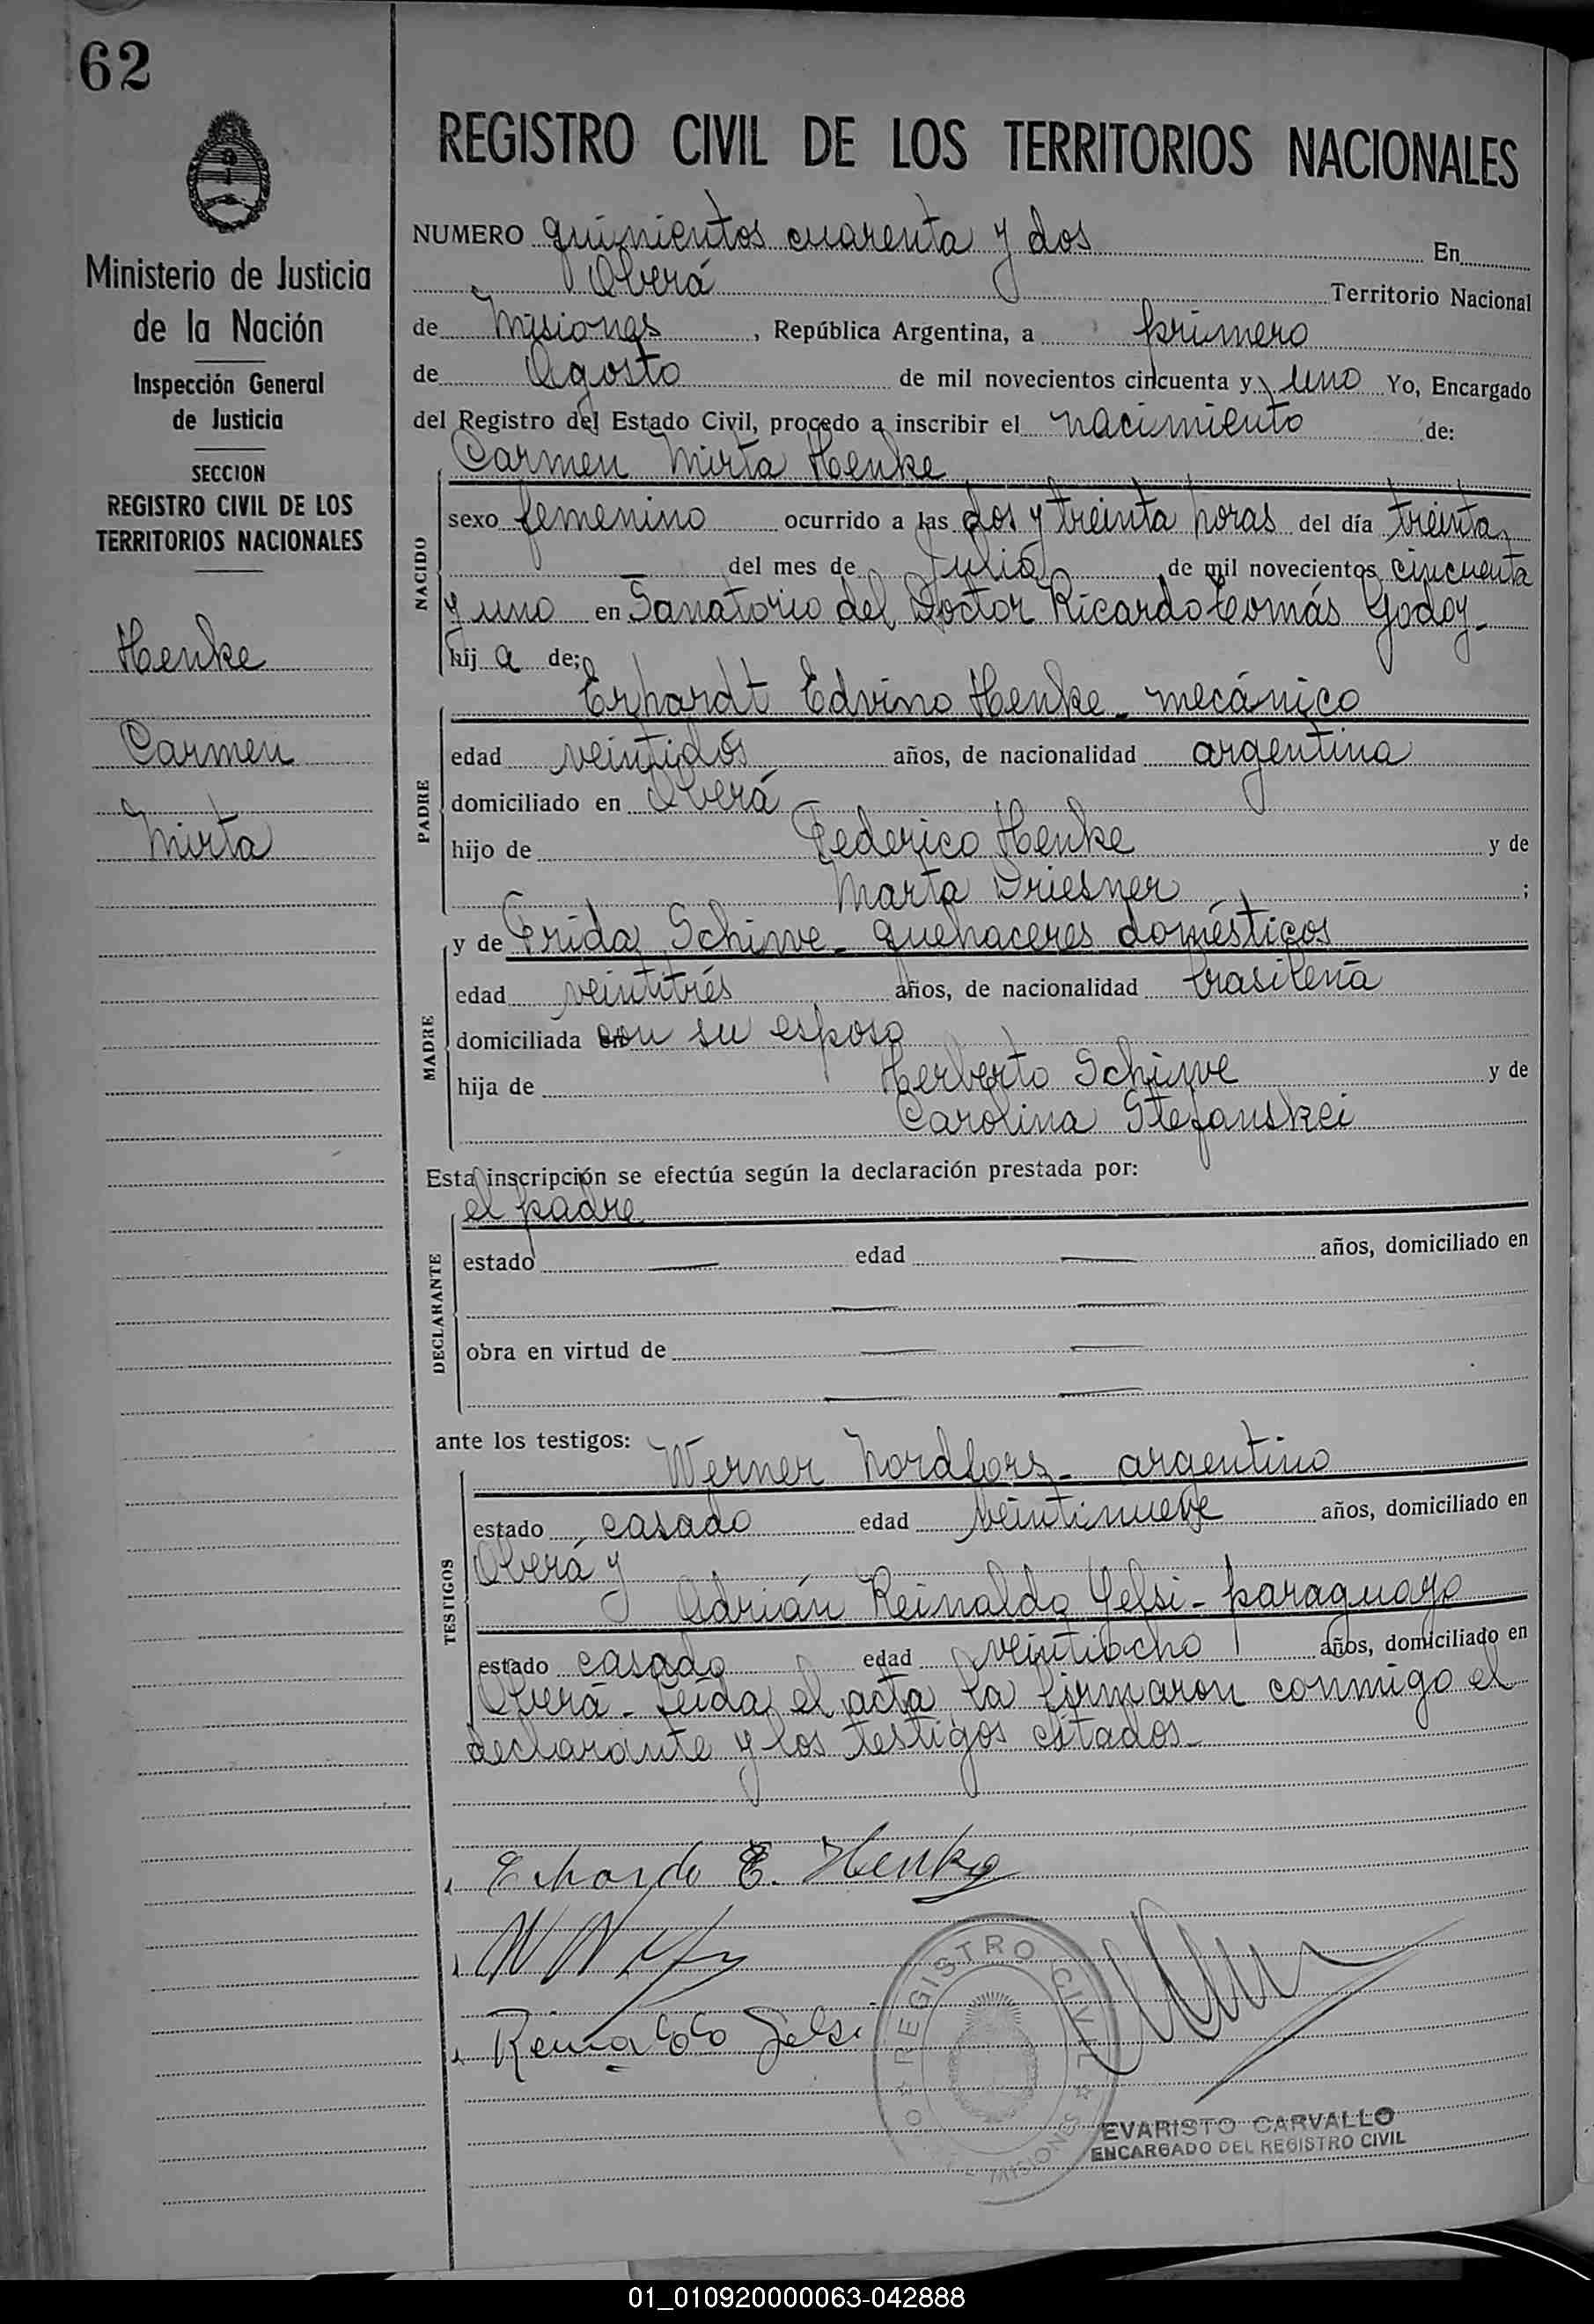 62
REGISTRO CIVIL DE LOS TERRITORIOS NACIONALES
Ministerio de Justicia
de la Nación
Inspección General
de Justicia
SECCION
REGISTRO CIVIL DE LOS
TERRITORIOS NACIONALES
Henke
Carmen
Mirta
NUMERO quinientos cuarenta y dos En
Oberá Territorio Nacional
de Misiones, República Argentina, a primero
de Agosto de mil novecientos cincuenta y uno Yo, Encargado
del Registro del Estado Civil, procedo a inscribir el nacimiento de:
Carmen Mirta Henke
NACIDO
sexo femenino ocurrido a las dos y treinta horas del día treinta
del mes de Julio de mil novecientos cincuenta
y uno en Sanatorio del Doctor Ricardo Tomás Godoy-
hij a de:
Erhardt Edvino Henke - mecánico
PADRE
edad veintidós años, de nacionalidad argentina
domiciliado en Oberá
hijo de Federico Henke y de
Marta Driesner ;
y de Frida Schiwe - quehaceres domésticos
MADRE
edad veintitrés años, de nacionalidad brasileña
domiciliada con su esposo
hija de Herberto Schiwe y de
Carolina Stefanskei
Esta inscripción se efectúa según la declaración prestada por:
el padre
DECLARANTE
estado — edad — años, domiciliado en
— —
obra en virtud de — —
— —
ante los testigos:
Werner Nordfors - argentino
TESTIGOS
estado casado edad veintinueve años, domiciliado en
Oberá y
Adrián Reinaldo Yelsi - paraguayo
estado casado edad veintiocho años, domiciliado en
Oberá - Leída el acta la firmaron conmigo el
declarante y los testigos citados-
E. Henke
REGISTRO CIVIL
MISIONES
EVARISTO CARVALLO
ENCARGADO DEL REGISTRO CIVIL
01_010920000063-042888